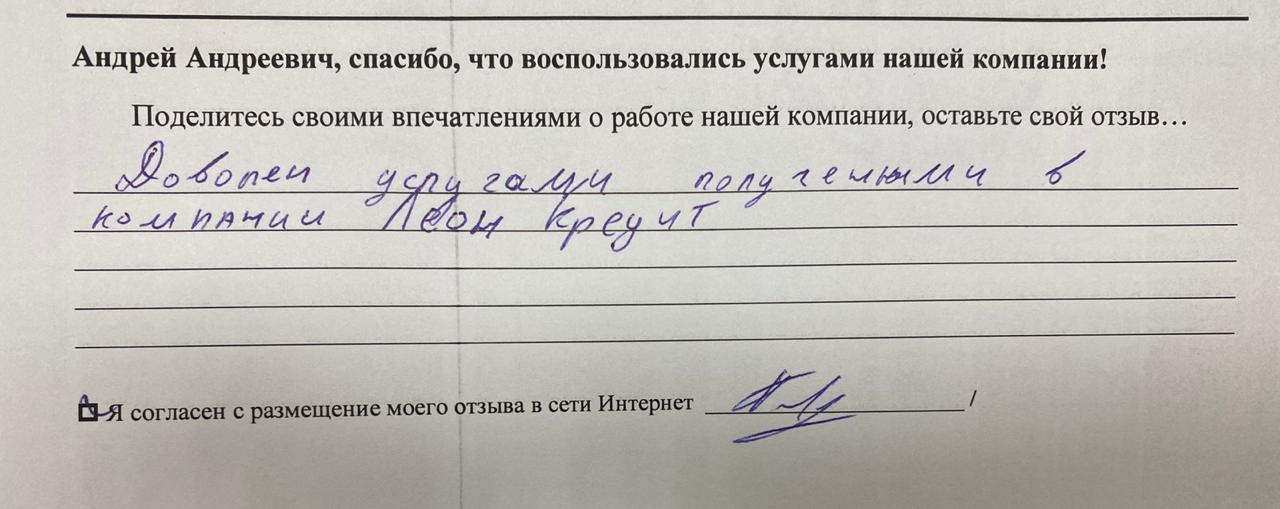 Андрей Андреевич, спасибо, что воспользовались услугами нашей компании!
Поделитесь своими впечатлениями о работе нашей компании, оставьте свой отзыв…
Доволен услугами полученными в
компании Леон Кредит
Я согласен с размещение моего отзыва в сети Интернет /